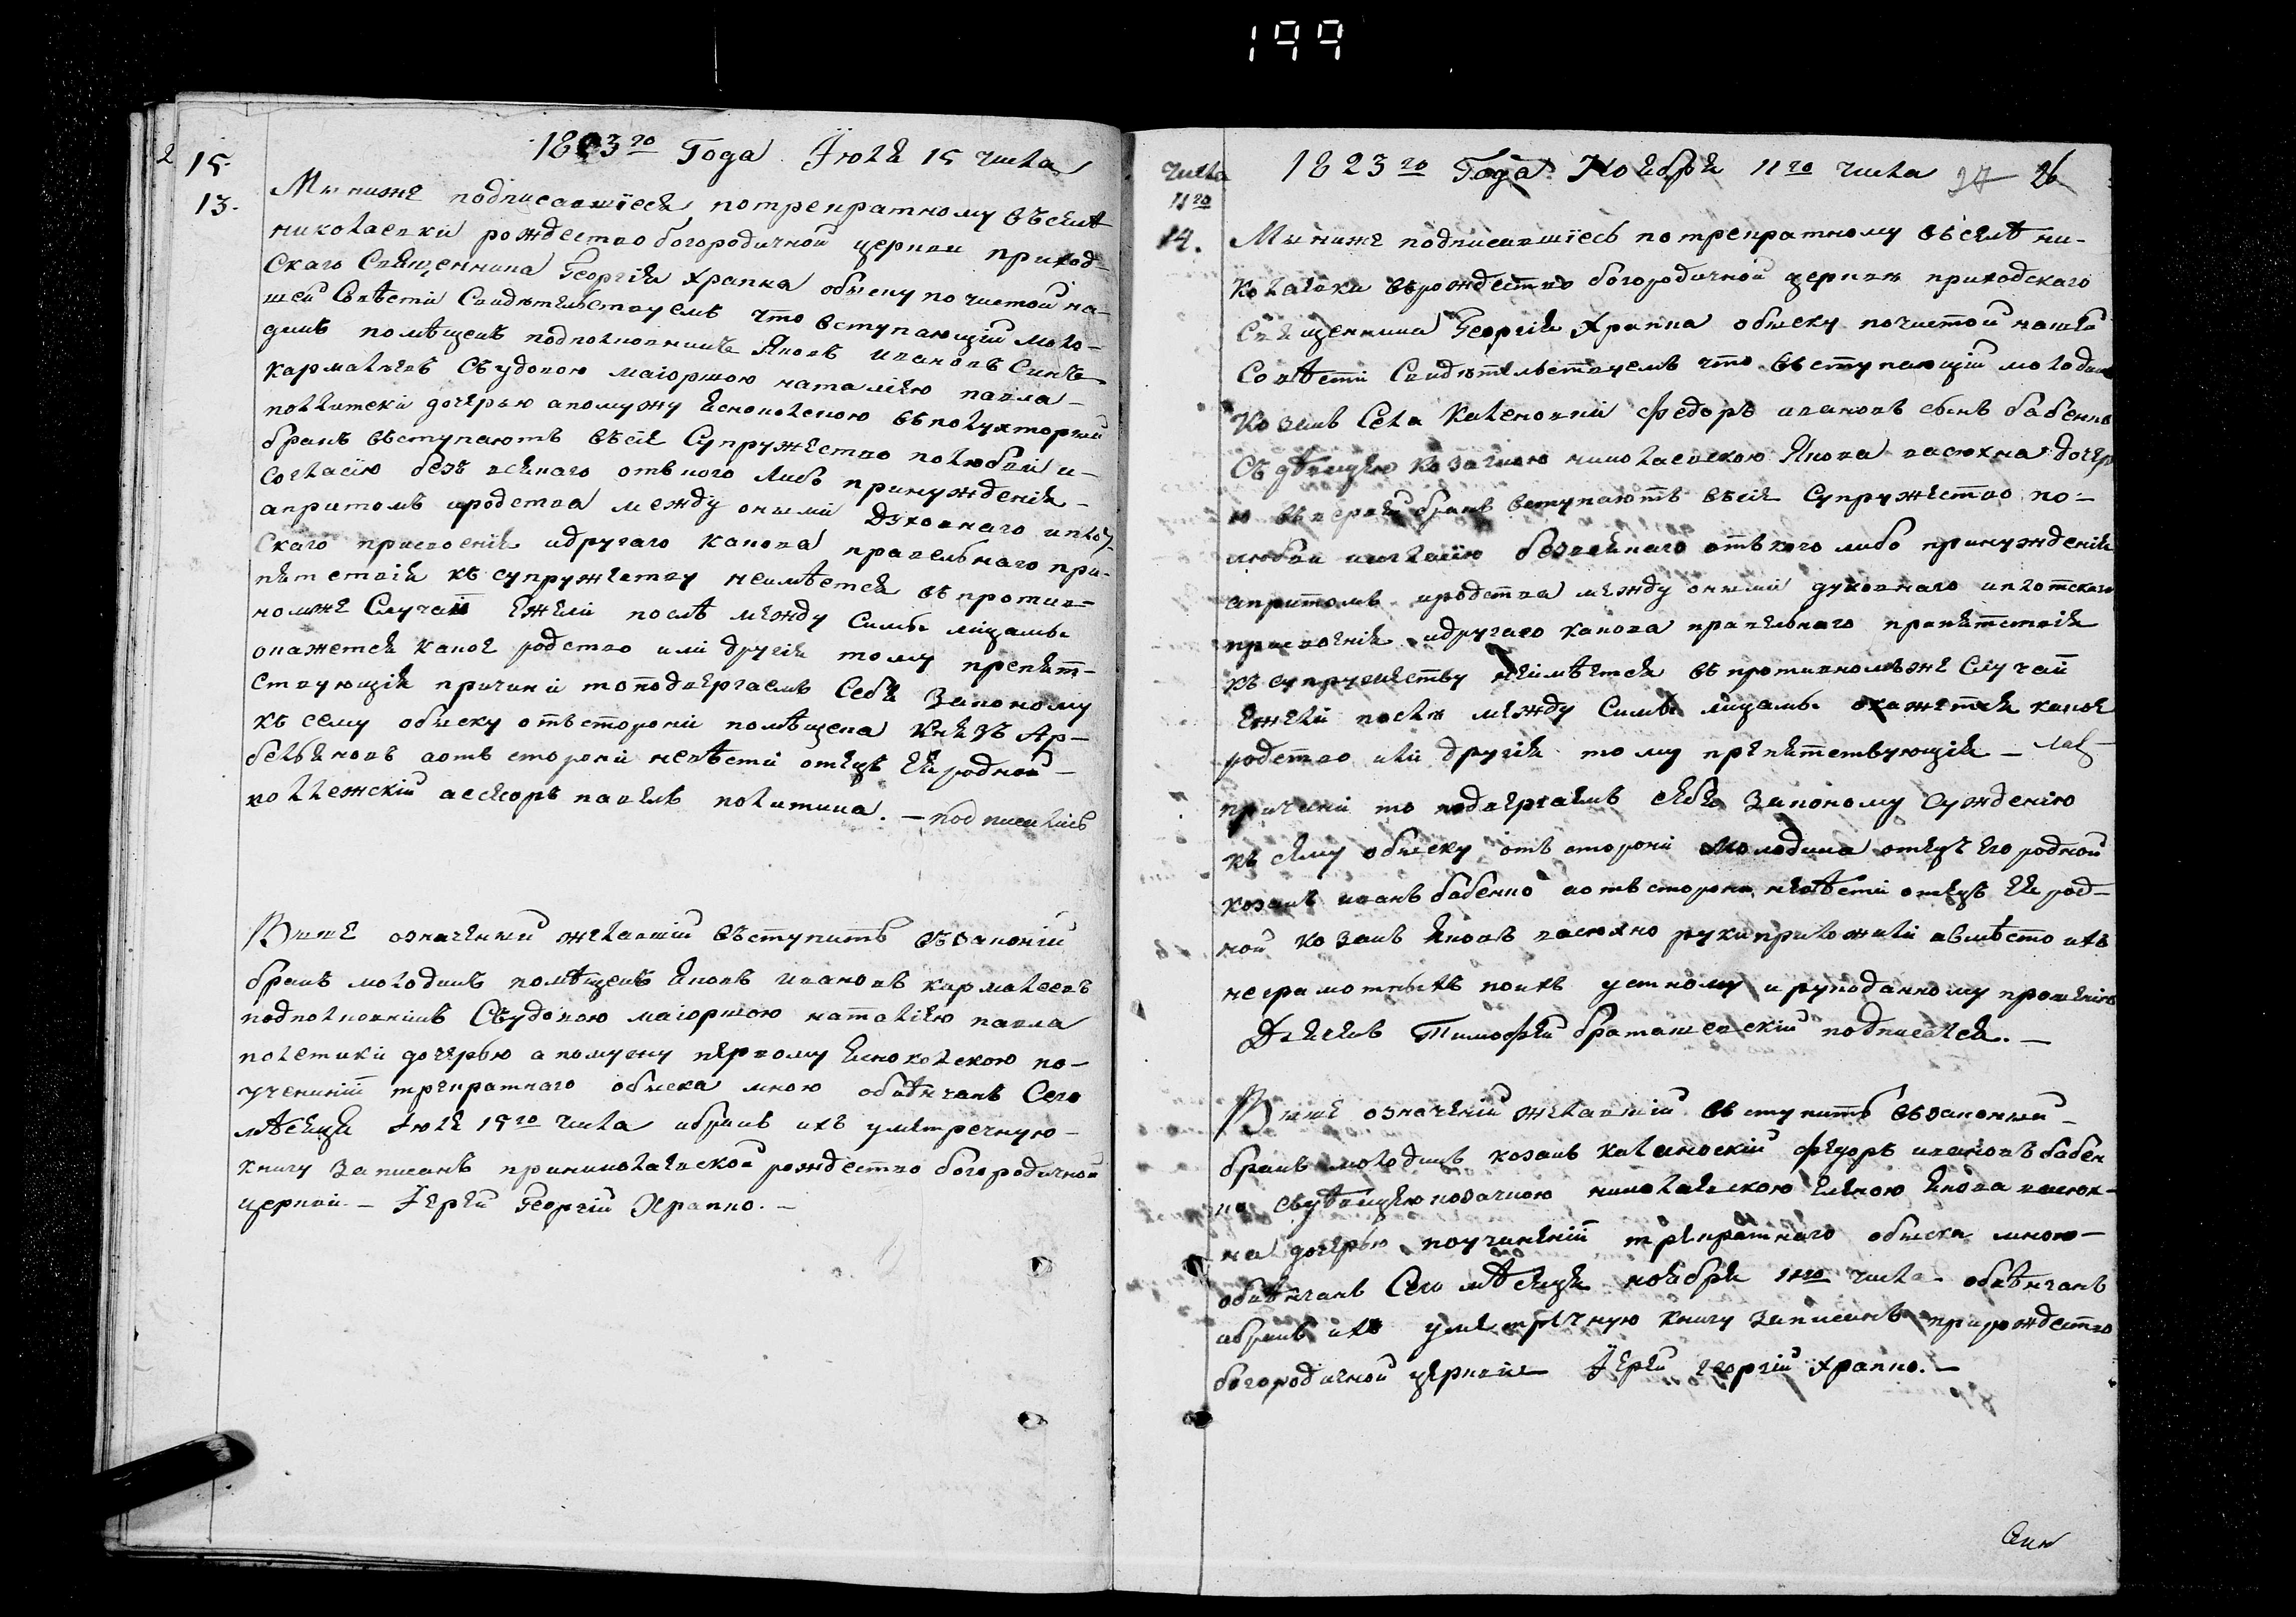 199
2
15.
1823го Года Июля 15 числа
13.
Мы ниже подписавшїеся потрекратному въ селѣ
николаевки рождество богородичной церкви приход-
скаго Священника Георгїя Храпка обыску по чистой на-
шей Совѣсти Свидѣтельствуемъ что вступающїй моло-
дикъ помѣщикъ подполковникъ Яковъ ивановъ Синъ
кармалѣевъ съ удовою маїоршою наталїею павла
политики дочерью апомужу Ясноколскою въ
бракъ въступаютъ въ сїе Супружество полюбви и
согласїю безъ всякаго отъ кого либо принужденїя
апритомъ иродства между оными духовнаго иплот-
скаго присвоенїя идругаго какова правелнаго при-
пятствїя къ супружеству неимѣется въ против-
номже Случаи Ежели послѣ между Симы лїцамы
окажется какое родство или другїя тому препят-
ствующїя причини топодвергаемъ Себя законому
къ сему обыску отъ сторони помѣщика Князъ Ар-
бельяновъ аотъ сторони невѣсти отецъ Ея родной
коллежскїй асесоръ павелъ политика. — подписались
Више означеный желавшїй въступитъ въ законїй
бракъ молодикъ помѣщикъ Яковъ ивановъ кармалеевъ
подполковникъ Съудовою маїоршою наталїею павла
полетики дочерью а помужу первому Ясноколскою по-
учененїї трекратнаго обыска мною обвѣнчанъ Сего
мѣсяця Июля 15го числа ибракъ ихъ уметречную
книгу записанъ приниколаевской рождество богородичной
церкви — Їерей Георгїй Храпко. —
числа
11го
1823го Года Ноября 11го числа 27 26
14.
Мы ниже подписавшїесь потрекратному въ селѣ ни-
колаевки въ рождество богородичной церкви приходскаго
Священника Георгїя Храпка обыску почистой нашей
Совѣсти Свидѣтельствуемъ что въступающїй молодикъ
Козакъ Села Федоръ ивановъ сынъ бабенко
Съ дѣвицею козачкою николаевскою Якова васюхна дочер
ю въ первый бракъ вступаютъ въ сїе Супружество по-
любви исогласїю безвсякаго отъ кого либо принужденїя
апритомъ иродства между оными духовнаго иплотскаго
присвоенїя идругаго какова правелнаго препятствїя
къ супружеству неимѣется въ противномъже Случаи
Ежели послѣ между Симы лїцамы окажется какое
родство или другїя тому препятствующїя —
причини то подвергаемъ себя законому сужденїю
къ сему обыску отъ сторони молодика отецъ Его родной
козакъ иванъ бабенко аотъ сторони невѣсти отецъ Ея род-
ной козакъ Яковъ васюхно руки приложили авмѣсто ихъ
неграмотныхъ поихъ устному ирукоданному прошенїю
Дьячекъ Тимофей браташевскїй подписался. —
Више означенїй желавшїй въступитъ въ законный
бракъ молодикъ козакъ Федоръ ивановъ бабен
ко съдѣвицею козачкою николаевскою Еленою Якова васюх-
на дочерью поучиненїї трекратнаго обыска мною —
обвѣнчанъ Сего мѣсяця ноября 11го числа обвѣнчанъ
ибракъ ихъ уметречную книгу записанъ прирождество
богородичной церкви — Їерей георгїй храпко. —